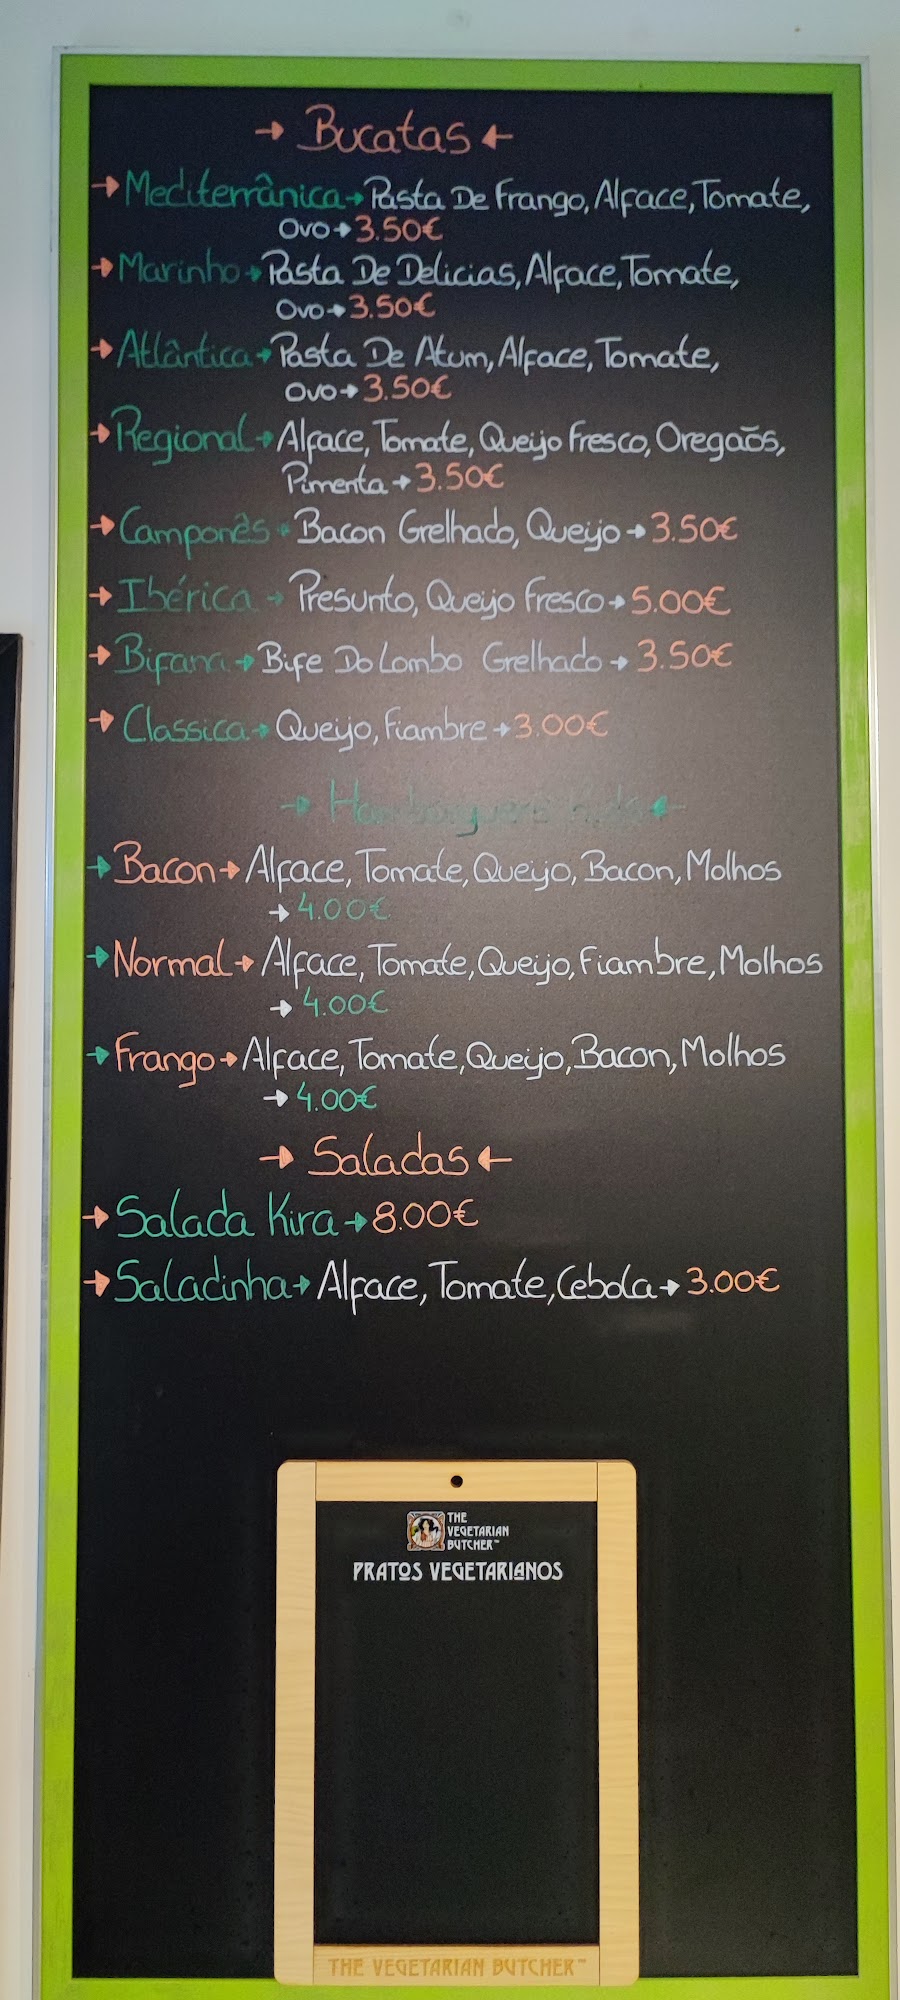 → Bucatas ←
→ Mediterrânica → Pasta De Frango, Alface, Tomate,
Ovo → 3.50€
→ Marinho → Pasta De Delicias, Alface, Tomate,
Ovo → 3.50€
→ Atlântica → Pasta De Atum, Alface, Tomate,
Ovo → 3.50€
→ Regional → Alface, Tomate, Queijo Fresco, Oregaõs,
Pimenta → 3.50€
→ Camponês → Bacon Grelhado, Queijo → 3.50€
→ Ibérica → Presunto, Queijo Fresco → 5.00€
→ Bifana → Bife Do Lombo Grelhado → 3.50€
→ Classica → Queijo, Fiambre → 3.00€
→ Hamburguers ←
→ Bacon → Alface, Tomate, Queijo, Bacon, Molhos
→ 4.00€
→ Normal → Alface, Tomate, Queijo, Fiambre, Molhos
→ 4.00€
→ Frango → Alface, Tomate, Queijo, Bacon, Molhos
→ 4.00€
→ Saladas ←
→ Salada Kira → 8.00€
→ Saladinha → Alface, Tomate, Cebola → 3.00€
THE
VEGETARIAN
BUTCHER™
PRATOS VEGETARIANOS
THE VEGETARIAN BUTCHER™